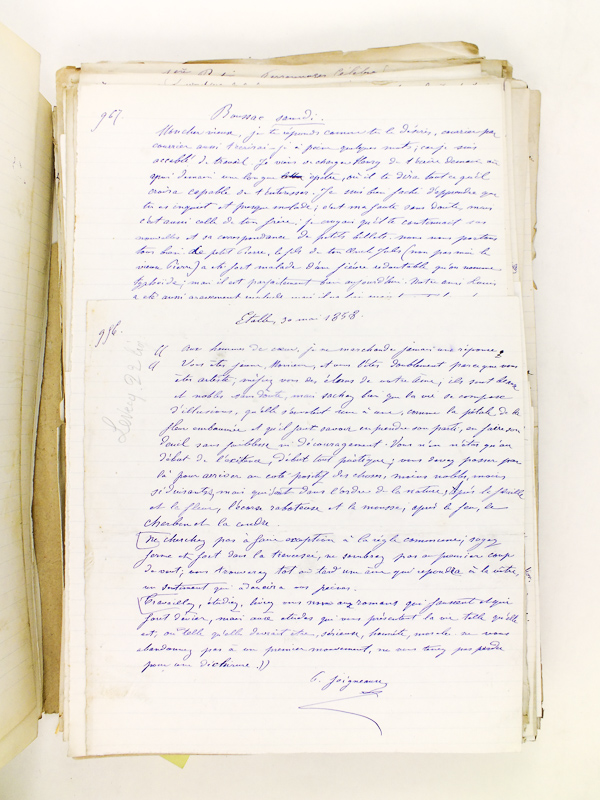 967
Boussac samedi.
Mon cher vieux, je te réponds comme tu le désires, courrier par
courrier aussi t'écrirai-je à peine quelques mots, car je suis
accablé de travail. Je viens de charger Fleury de t'écrire demain, ce
sera demain une longue épitre, où il te dira tout ce qu'il
croira capable de t'intéresser. Je suis bien fâché d'apprendre que
tu es inquiet et presque malade; c'est ma faute sans doute, mais
c'est aussi celle de ton frère: je croyais qu'il te continuait ses
nouvelles et sa correspondance de petits billets. nous nous portons
tous bien. Le petit Pierre, le fils de ton (non pas moi le
vieux Pierre) a été fort malade d'une fièvre redoutable qu'on nomme
typhoïde; mais il est parfaitement bien aujourd'hui. Notre
a été aussi gravement malade
956.
Etalle, 30 mai 1858.
Lévy 22
(( Aux hommes de cœur, je ne marchande jamais une réponse.
(( Vous êtes jeune, Monsieur, et vous l'êtes doublement parce que vous
êtes artiste; méfiez vous des élans de votre âme, ils sont beaux
et nobles sans doute, mais sachez bien que la vie se compose
d'illusions, qu'elle s'envolent une à une, comme la pétale de la
fleur embaumée et qu'il faut savoir en prendre son parti, en faire son
deuil sans faiblesse ni découragement. Vous n'en n'êtes qu'au
début de l'existence, début tout poétique; vous devez passer par
là pour arriver au coté positif des choses, moins nobles, moins
séduisantes, mais qui sont dans l'ordre de la nature; après la feuille
et la fleur, l'écorce raboteuse et la mousse, après le feu, le
charbon et la cendre.
Ne cherchez pas à faire exception à la règle commune; soyez
ferme et fort dans la traversée, ne sombrez pas au premier coup
de vent; vous trouverez tot ou tard une âme qui répondra à la vôtre,
un sentiment qui adoucira vos peines.
Travaillez, étudiez, livrez vous non aux romans qui faussent et qui
font dévier, mais aux études qui vous présentent la vie telle qu'elle
est, ou telle qu'elle devrait être, sérieuse, honnête, morale. ne vous
abandonnez pas à un premier mouvement, ne vous tenez pas perdu
pour une déchirure. ))
P. Joigneaux